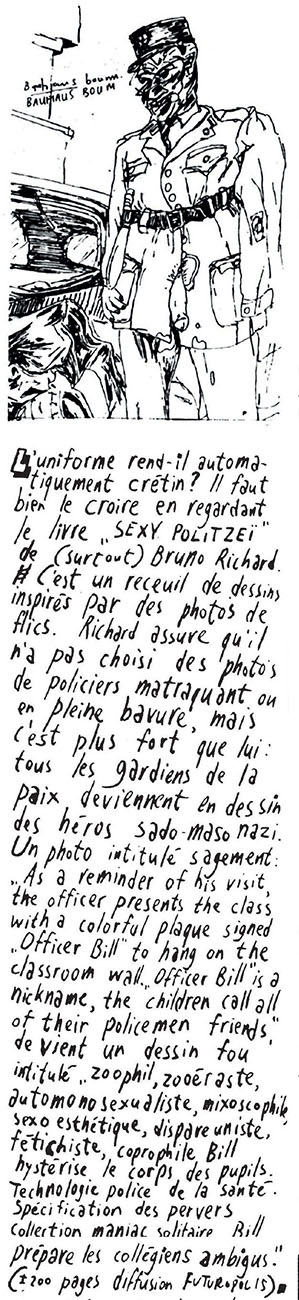 Bauhaus boum.
BAUHAUS BOUM
L'uniforme rend-il automa-
tiquement crétin? Il faut
bien le croire en regardant
le livre „SEXY POLITZEÏ"
de (surtout) Bruno Richard.
C'est un receuil de dessins
inspirés par des photos de
flics. Richard assure qu'il
n'a pas choisi des photos
de policiers matraquant ou
en pleine bavure, mais
c'est plus fort que lui:
tous les gardiens de la
paix deviennent en dessin
des héros sado-maso nazi.
Un photo intitulé sagement:
„As a reminder of his visit,
the officer presents the class
with a colorful plaque signed
„Officer Bill" to hang on the
classroom wall. „Officer Bill" is a
nickname, the children call all
of their policemen friends"
devient un dessin fou
intitulé „zoophil, zooéraste,
automonosexualiste, mixoscophile,
sexo esthétique, dispareuniste,
fétichiste, coprophile Bill
hystérise le corps des pupils.
Technologie police de la santé.
Spécification des pervers
collection maniac solitaire Bill
prépare les collégiens ambigus."
(±200 pages diffusion FUTUROPOLIS)